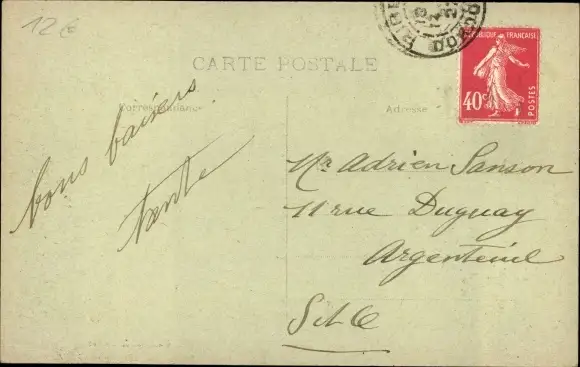 12 €
CARTE POSTALE
Correspondance
Adresse
RÉPUBLIQUE FRANÇAISE
40c
POSTES
bons baisers
Tante
Mr Adrien Sanson
11 rue Duguay
Argenteuil
S et O